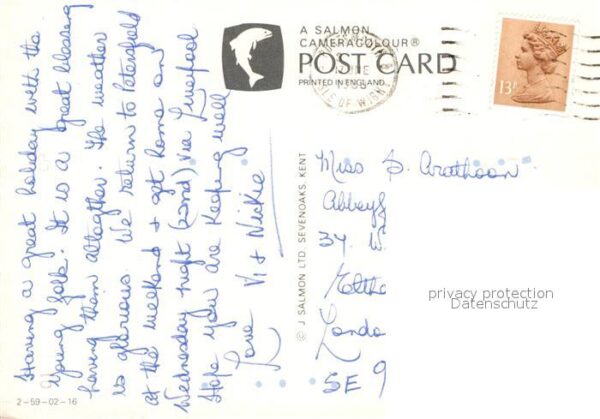 Having a great holiday with the
young folk. It is a great blessing
having them altogther. The weather
is glorious. We return to Petersfield
at the weekend & get home on
Wednesday night (2nd) via Liverpool
Hope you are keeping well
Love Vi & Nickie
2-59-02-16
© J SALMON LTD SEVENOAKS, KENT
A SALMON
CAMERACOLOUR®
POST CARD
PRINTED IN ENGLAND
ISLE OF WIGHT
13P
Miss S. Arathoon
Abbeyf
37 W
Londo
SE 9
privacy protection
Datenschutz